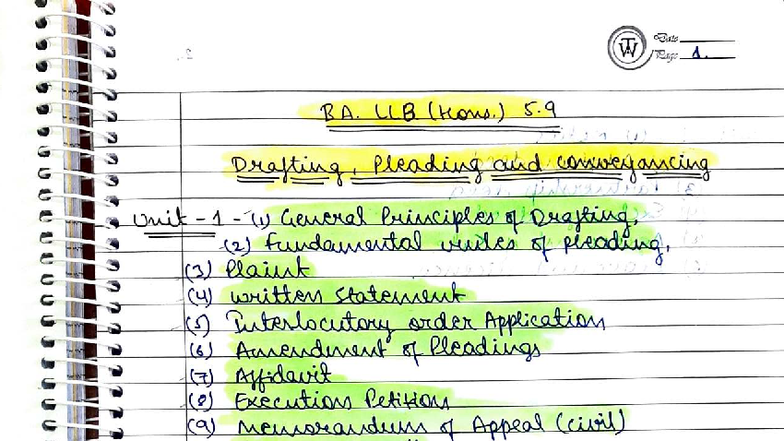 Date
Page 1.
BA. LLB (Hons.) 5.9
Drafting, Pleading and conveyancing
Unit - 1 - (1) General Principles of Drafting,
(2) Fundamental rules of pleading,
(3) Plaint
(4) written statement
(5) Interlocutory order Application
(6) Amendment of Pleadings
(7) Affidavit
(8) Execution Petition
(9) Memorandum of Appeal (civil)